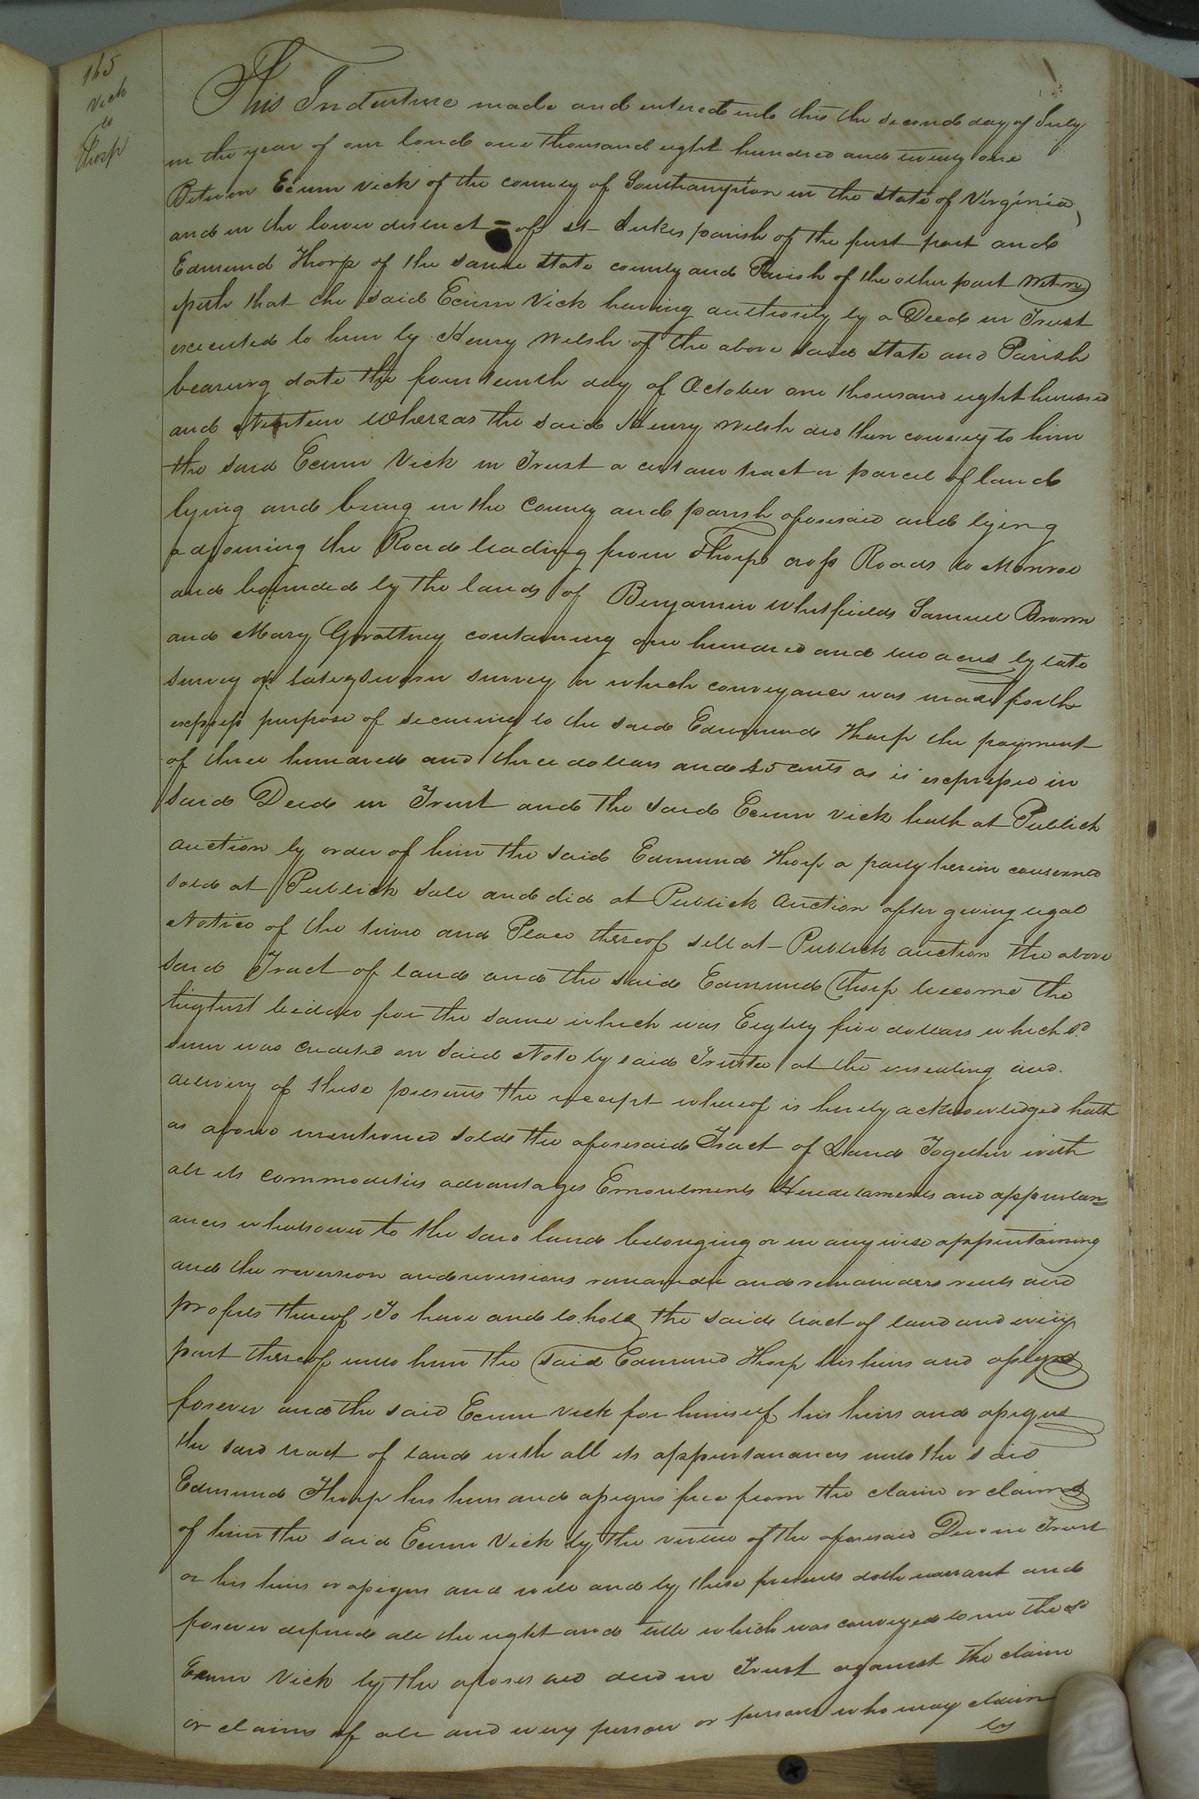 165
Vick
to
Thorp
This Indenture made and entered into this the second day of July
in the year of our lond one thousand eight hundred and twenty one
Between Ecum Vick of the county of Southampton in the state of Virginia,
and in the lower district - of St Lukes parish of the first part and
Edmund Thorp of the same state county and Parish of the other part Witne
sseth that the said Ecum Vick having authority by a Deed in Trust
executed to him by Henry Welsh of the above said state and Parish
bearing date the fourteenth day of October one thousand eight hundred
and Nineteen Whereas the said Henry Welsh did then convey to him
the said Ecum Vick in Trust a certain tract or parcel of land
lying and being in the County and parish aforesaid and lying
adjoining the Road leading from Thorps cross Roads to Monroe
and bounded by the lands of Benjamin Whitfields Samuel Brown
and Mary Grattney containing one hundred and two acres by late
survey or survey in which conveyance was made for the
express purpose of securing to the said Edmund Thorp the payment
of three hundred and three dollars and 25 cents as is expressed in
said Deed in Trust and the said Ecum Vick hath at Publick
auction by order of him the said Edmund Thorp a party herein concerned
sold at Publick sale and did at Publick Auction after giving legal
Notice of the time and Place thereof sell at Publick auction the above
said Tract of land and the said Edmund Thorp become the
highest bidder for the same which was Eighty five dollars which sd
sum was credited on said Note by said Trustee at the ensealing and
delivery of these presents the receipt whereof is hereby acknowledged hath
as above mentioned sold the aforesaid Tract of Land Together with
all its commodities advantages Emoulments Hereditaments and appurtan=
ances whatsoever to the said land belonging or in any wise appertaining
and the reversion and reversions remainder and remainders rents and
profits thereof To have and to hold the said tract of land and every
part thereof unto him the said Edmund Thorp his heirs and assigns
forever and the said Ecum Vick for himself his heirs and assigns
the said tract of land with all its appurtanances unto the said
Edmund Thorp his heirs and assigns free from the claim or claims
of him the said Ecum Vick by the virtue of the aforesaid Deed in Trust
or his heirs or assigns and will and by these presents doth warrant and
forever defend all the right and title which was conveyed to me the sd
Ecum Vick by the aforesaid deed in Trust against the claim
or claims of all and every person or persons who may claim
by